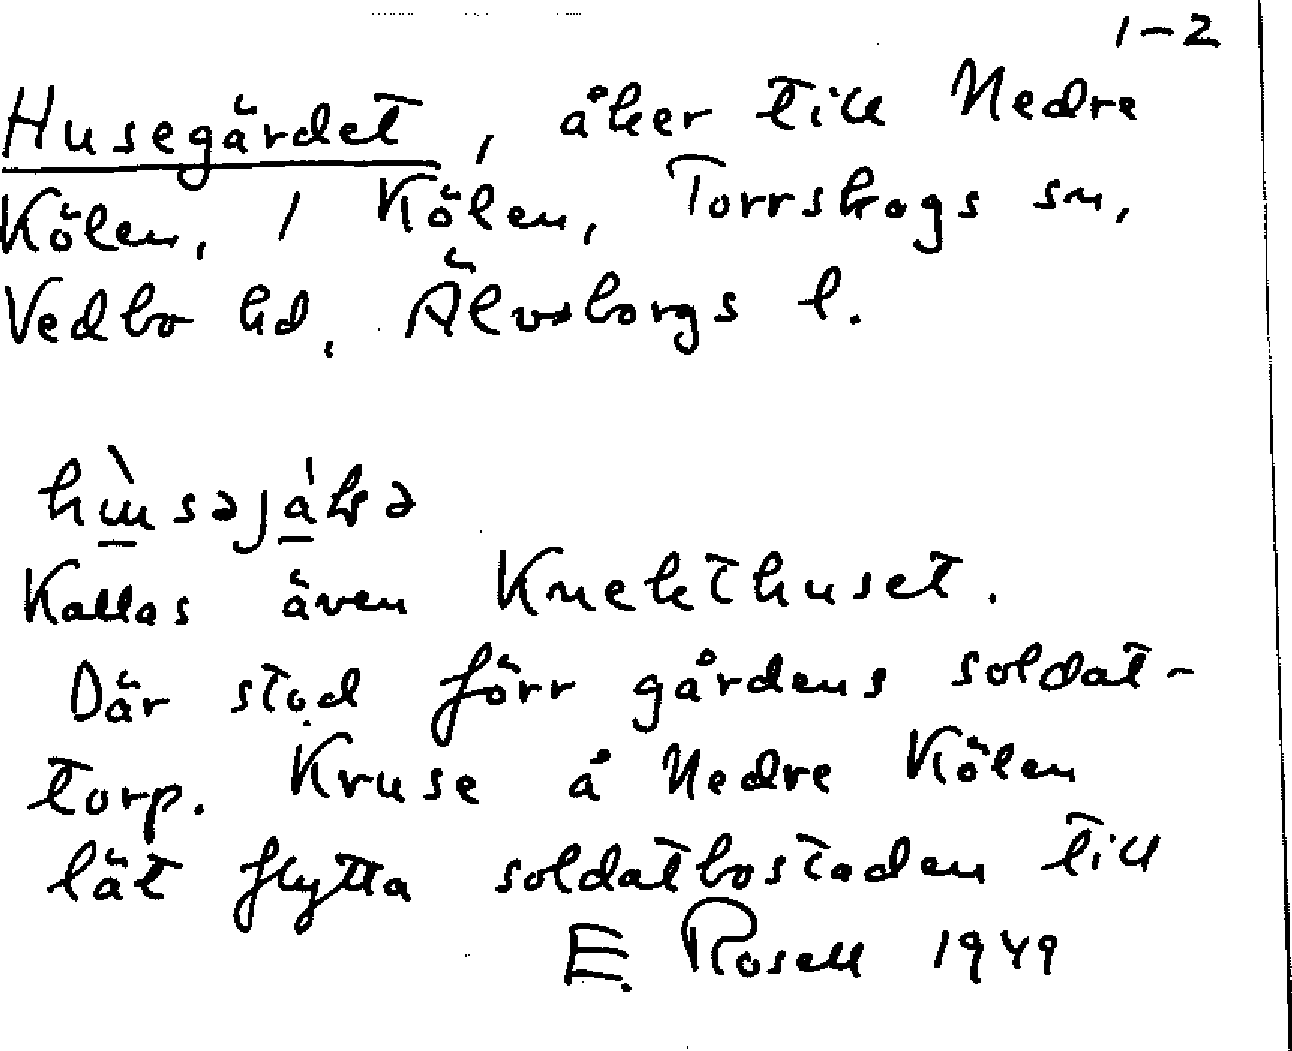 1-2
Husegärdet, åker till Nedre
Kölen, 1 Kölen, Torrskogs sn,
Vedbo hd, Älvsborgs l.
Kallas även Knekthuset.
Där stod förr gårdens soldat-
torp. Kruse å Nedre Kölen
lät flytta soldatbostaden till
E. Rosell 1949